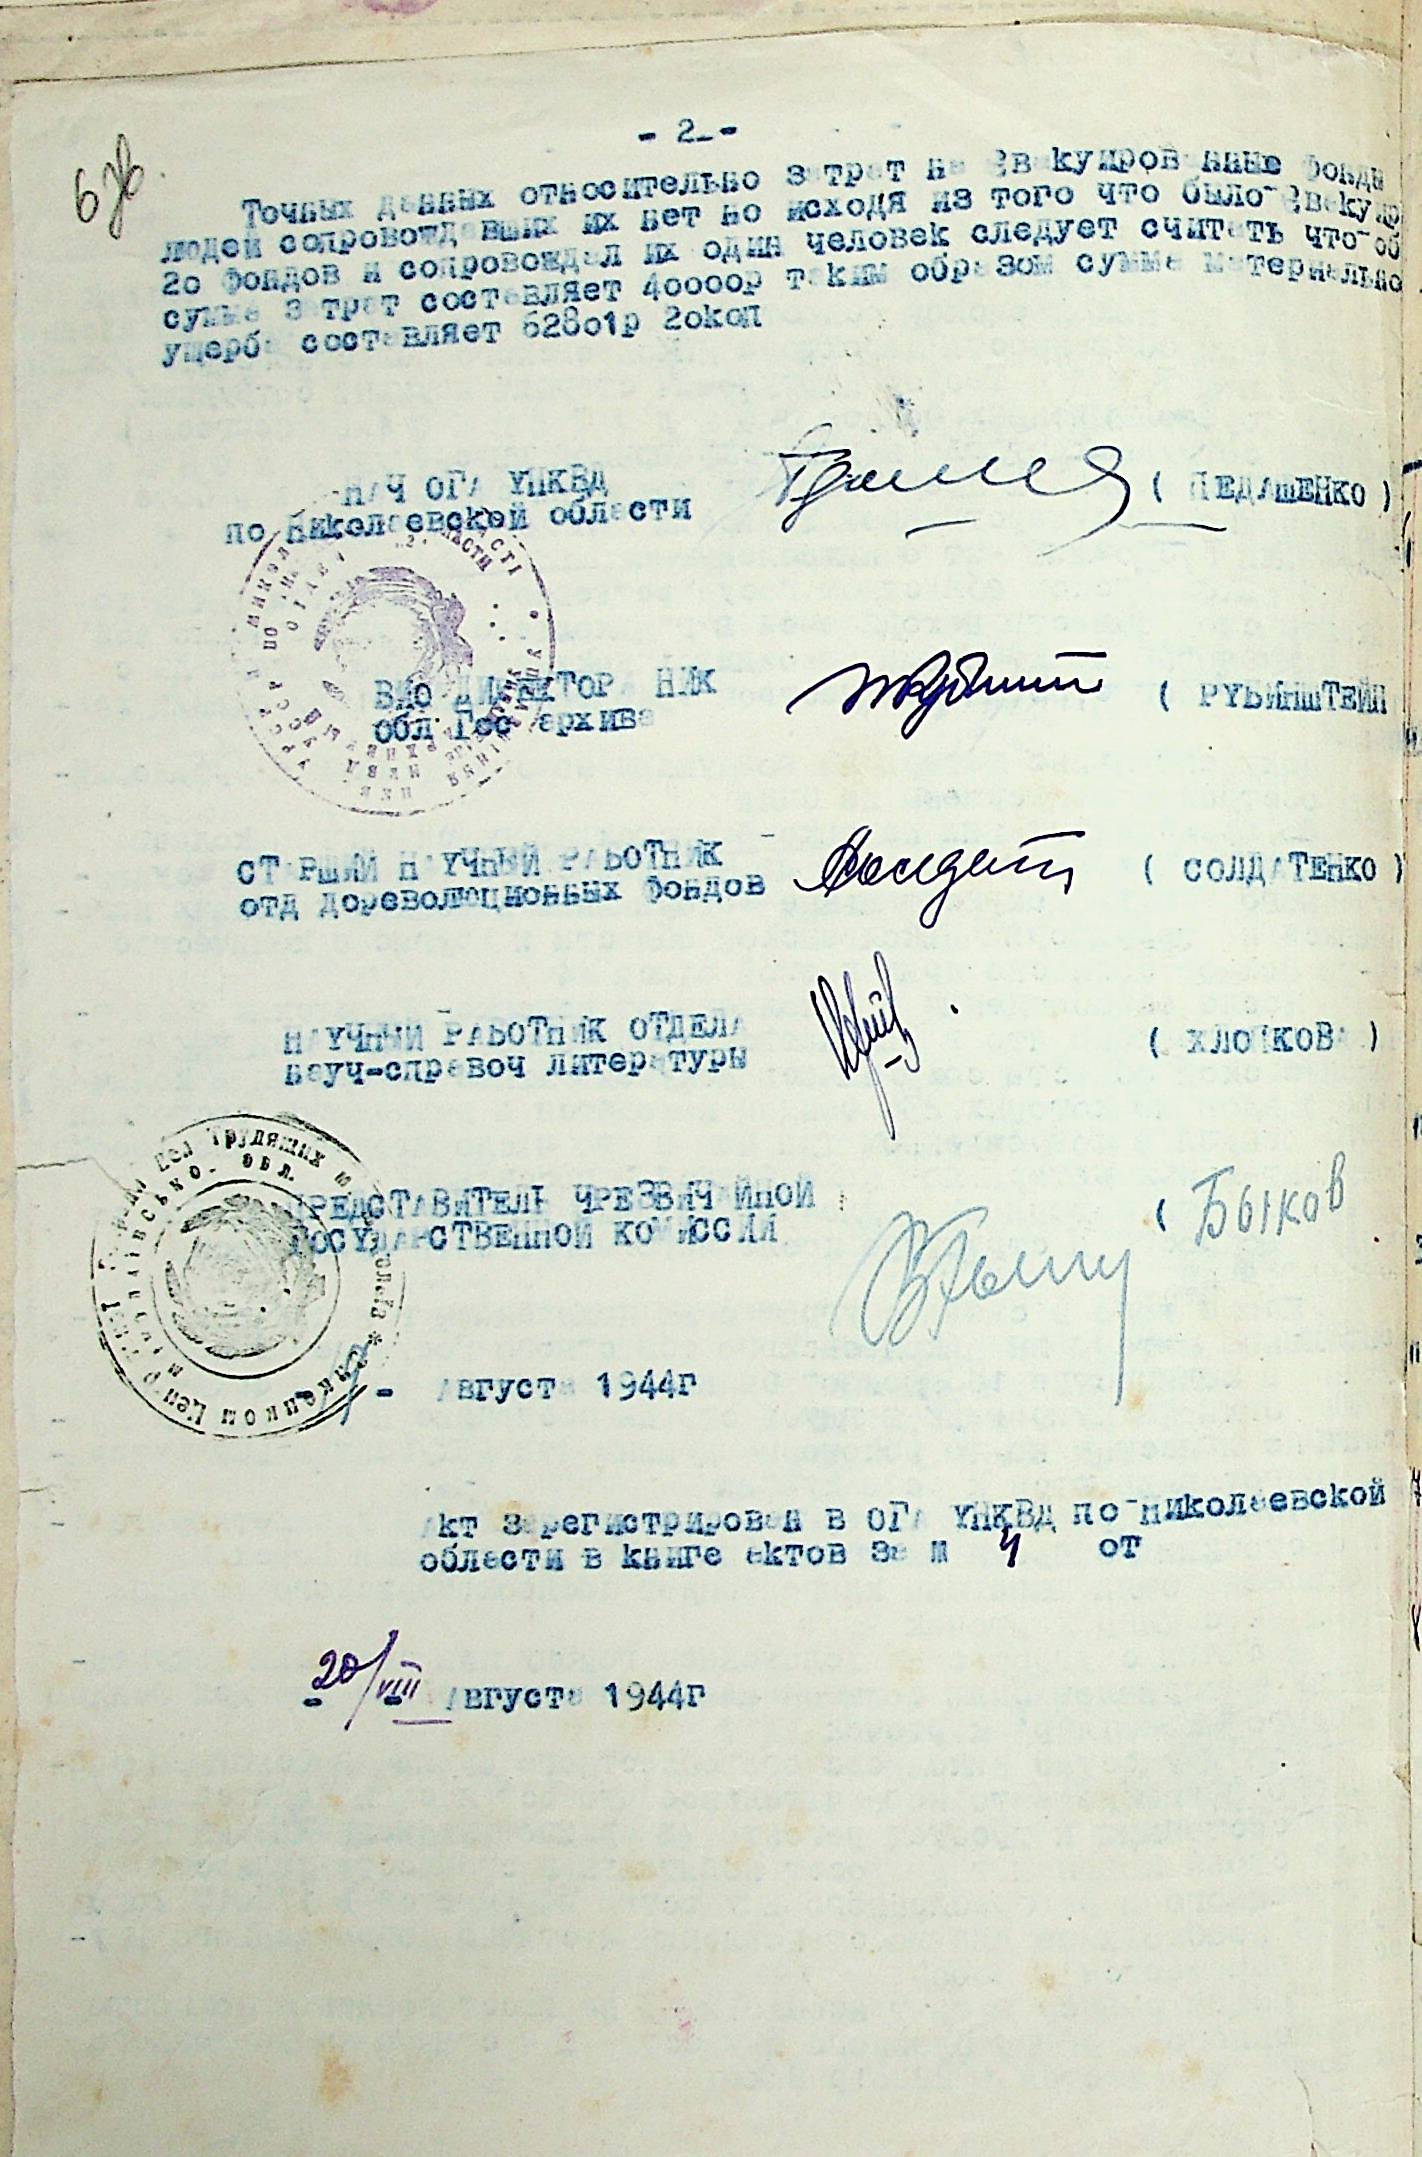 6 зв.
- 2 -
Точных данных относительно затрат на эвакуированные фонды
людей сопровождавших их нет но исходя из того что было эвакуир
2о фондов и сопровождал их один человек следует считать что об
сумма затрат составляет 4оооор таким образом сумма материально
ущерба составляет 628о1р 2окоп
НАЧ ОГА УНКВД
по Николаевской области
( ПЕДАШЕНКО )
ВИО ДИРЕКТОРА НИК
обл Гос архива
( РУБИНШТЕЙН
СТАРШИЙ НАУЧНЫЙ РАБОТНИК
отд дореволюционных фондов
Солдат
( СОЛДАТЕНКО )
НАУЧНЫЙ РАБОТНИК ОТДЕЛА
науч-справоч литературы
( ХЛОПКОВА )
ПРЕДСТАВИТЕЛЬ ЧРЕЗВИЧАЙНОЙ
ГОСУДАРСТВЕННОЙ КОМИССИИ
( Быков
19 - Августа 1944г
Акт зарегистрирован в ОГА УНКВД по Николаевской
области в книге актов за № 4 от
- 20/VIII - Августа 1944г